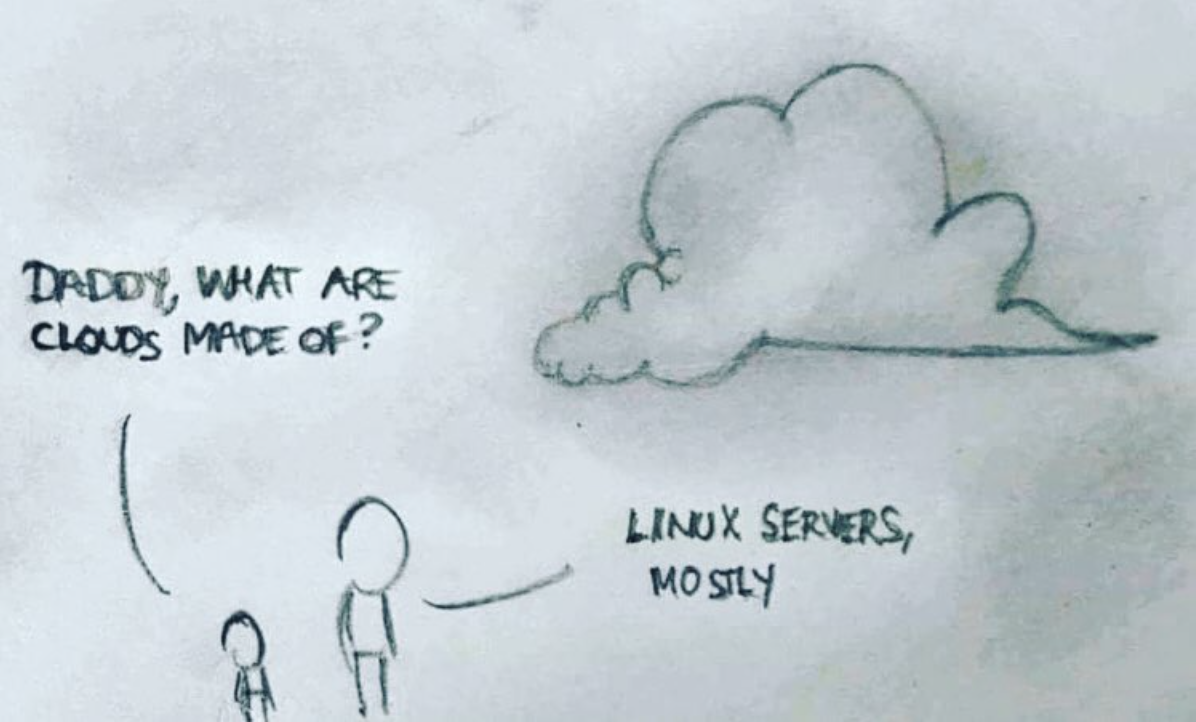 DADDY, WHAT ARE
CLOUDS MADE OF?
LINUX SERVERS,
MOSTLY